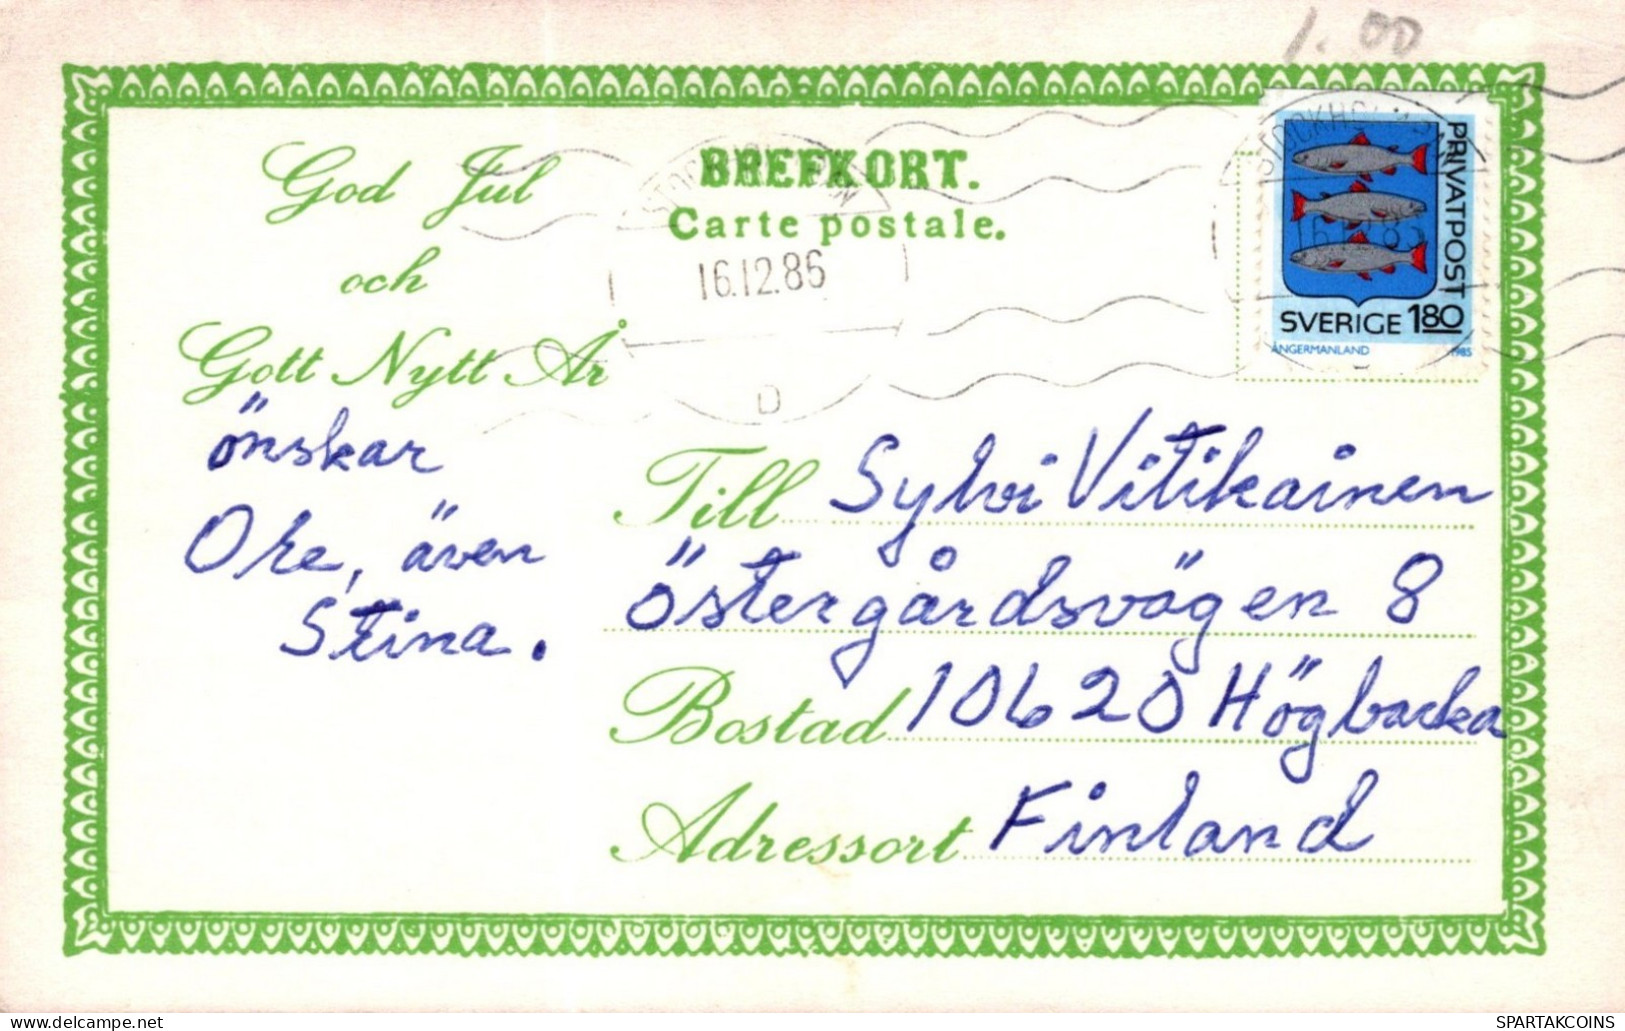 1.00
God Jul
och
Gott Nytt År
önskar
Ore, även
Stina.
BREFKORT.
Carte postale.
16.12.86
D
PRIVATPOST
SVERIGE 180
ÅNGERMANLAND 1985
Till Sylvi Vitikainen
Östergårdsvägen 8
Bostad 10620 Högbacka
Adressort Finland
delcampe.net
SPARTAKCOINS